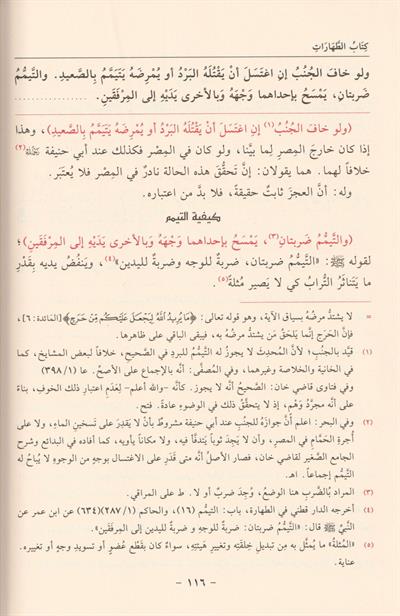 كِتَابُ الطَّهَارَاتِ
ولو خافَ الجُنُبُ إنِ اغتَسَلَ أنْ يَقْتُلَهُ البَرْدُ أو يُمْرِضَهُ يَتَيَمَّمُ بِالصَّعيدِ. والتَّيمُّمُ
ضَربتانِ، يَمْسَحُ بإحداهما وَجْهَهُ وَبالأخرى يَدَيْهِ إلى المِرْفَقَينِ.
(ولو خافَ الجُنُبُ(١) إنِ اغتَسَلَ أنْ يَقْتُلَهُ البَرْدُ أو يُمْرِضَهُ يَتَيَمَّمُ بِالصَّعيدِ)، وهذا
إذا كان خارجَ المِصرِ لِما بيَّنا، ولو كان في المِصْر فكذلك عند أبي حنيفة رحمه الله(٢)
خلافاً لهما. هما يقولان: إنَّ تَحقُّقَ هذه الحالة نادرٌ في المِصْر فلا يُعتَبَر.
وله: أنَّ العجزَ ثابتٌ حقيقةً، فلا بدَّ من اعتباره.
كيفية التيمم
(والتَّيمُّمُ ضَربتانِ(٣)، يَمْسَحُ بإحداهما وَجْهَهُ وَبالأخرى يَدَيْهِ إلى المِرْفَقَينِ)؛
لقوله ﷺ: «التَّيمُّمُ ضربتان، ضربةٌ للوجه وضربةٌ لليدين»(٤)، ويَنفُضُ يديه بِقَدْرِ
ما يَتَناثَرُ التُّرابُ كي لا يَصير مُثلةً(٥).
= لا يشتدُّ مرضُهُ بسياق الآية، وهو قوله تعالى: ﴿مَا يُرِيدُ اللَّهُ لِيَجْعَلَ عَلَيْكُم مِّنْ حَرَجٍ﴾[المائدة: ٦]،
فإن الحَرَج إنَّما يَلحَقُ مَن يشتدُّ مرضُهُ به، فيبقى الباقي على ظاهرها.
(١) قيَّد بالجنُبِ؛ لأنَّ المُحدِثَ لا يجوزُ له التَّيمُّمُ للبردِ في الصَّحيحِ، خلافاً لبعض المشايخ، كما
في الخانية والخلاصة وغيرهما، وفي المُصفَّى: أنَّه بالإجماع على الأصحِّ. عا (٣٩٨/١)
وفي فتاوى قاضي خان: الصَّحيحُ أنَّه لا يجوز. كأنَّه -والله أعلم- لِعَدَمِ اعتبارِ ذلك الخوف، بناءً
على أنَّه مجرَّدُ وَهْمٍ، إذ لا يتحقَّقُ ذلك في الوضوءِ عادةً. فتح.
(٢) وفي البحر: اعلم أنَّ جوازَهُ للجنُبِ عند أبي حنيفة مشروطٌ بأنْ لا يَقدِرَ على تسخينِ الماءِ، ولا على
أُجرةِ الحَمَّامِ في المصرِ، ولا يَجِدَ ثوباً يَتدفَّأ فيه، ولا مكاناً يأويه، كما أفاده في البدائع وشرح
الجامع الصَّغير لقاضي خان، فصار الأصلُ أنَّه متى قَدَرَ على الاغتسالِ بوجهٍ من الوجوهِ لا يُباحُ له
التَّيمُّم إجماعاً. اهـ.
(٣) المراد بِالضَّربِ هنا الوضعُ، وُجِدَ ضربٌ أو لا. ط على المراقي.
(٤) أخرجه الدار قطني في الطهارة، باب: التيمُّم (١٦)، والحاكم (٢٨٧/١)(٦٣٤) عن ابن عمر عن
النَّبيِّ ﷺ قال: «التَّيمُّمُ ضربتان: ضربةٌ للوجهِ و ضربةٌ لليدين إلى المِرفقين».
(٥) «المُثلةُ» ما يُمثَّل به مِن تبديلِ خِلقتِهِ وتغييرِ هَيئتِهِ، سواءٌ كان بقَطعِ عُضوٍ أو تسويدِ وجهٍ أو تغييره.
عناية.
- ١١٦ -